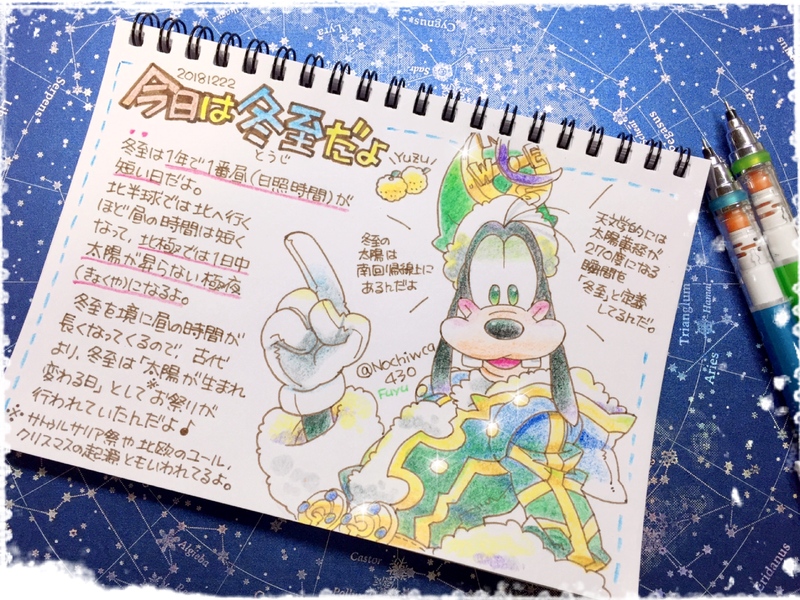 20181222
今日は冬至だよ
とうじ
冬至は1年で1番昼(日照時間)が
短い日だよ。
北半球では北へ行く
ほど昼の時間は短く
なって、北極では1日中
太陽が昇らない極夜
(きょくや)になるよ。
冬至を境に昼の時間が
長くなってくるので、古代
より、冬至は「太陽が生まれ
変わる日」として※お祭りが
行われていたんだよ♪
※サトゥルナリア祭や北欧のユール、
クリスマスの起源ともいわれてるよ。
YUZU
冬至の
太陽は
南回帰線上に
あるんだよ
天文学的には
太陽黄経が
270度になる
瞬間を
冬至と定義
してるんだ。
@Nochiwca
430
Fuyu
Cygnus
Lyra
Sadr
Serpens
Pegasus
Triangulum
Hamal
Aries
Algieba
Castor
Eridanus